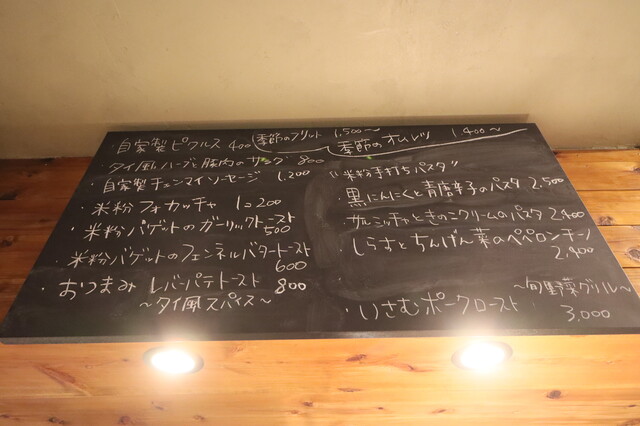 ・自家製ピクルス 400
季節のフリット 1,500〜
季節のオムレツ 1,400〜
タイ風ハーブと豚肉のサラダ 800
・自家製チェンマイソーセージ 1,200
・米粉フォカッチャ 1コ200
・米粉バゲットのガーリックトースト
500
・米粉バゲットのフェンネルバタートースト
600
・おつまみ レバーパテトースト 800
〜タイ風スパイス〜
"米粉手打ちパスタ"
黒にんにくと青唐辛子のパスタ 2,500
サルシッチャときのこクリームのパスタ 2,400
しらすとちんげん菜のペペロンチーノ
2,400
〜旬野菜グリル〜
・いさむポークロースト
3,000